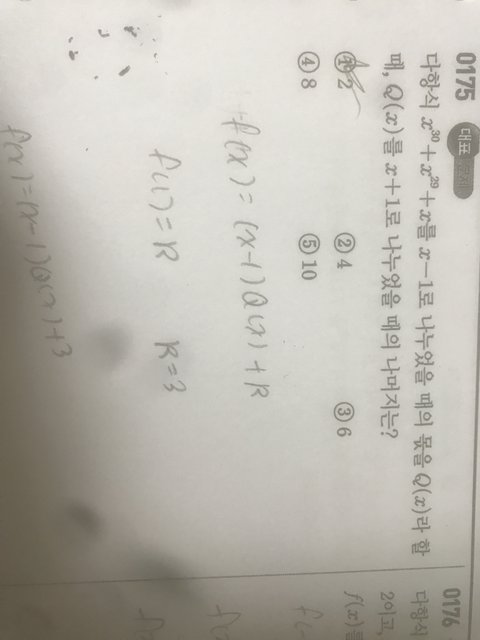 0175 대표
다항식 x³⁰+x²⁹+x를 x-1로 나누었을 때의 몫을 Q(x)라 할
때, Q(x)를 x+1로 나누었을 때의 나머지는?
① 2 ② 4 ③ 6
④ 8 ⑤ 10
f(x) = (x-1)Q(x)+R
f(1) = R R=3
f(x) = (x-1)Q(x)+3
0176
다항식
2이고
f(x)를